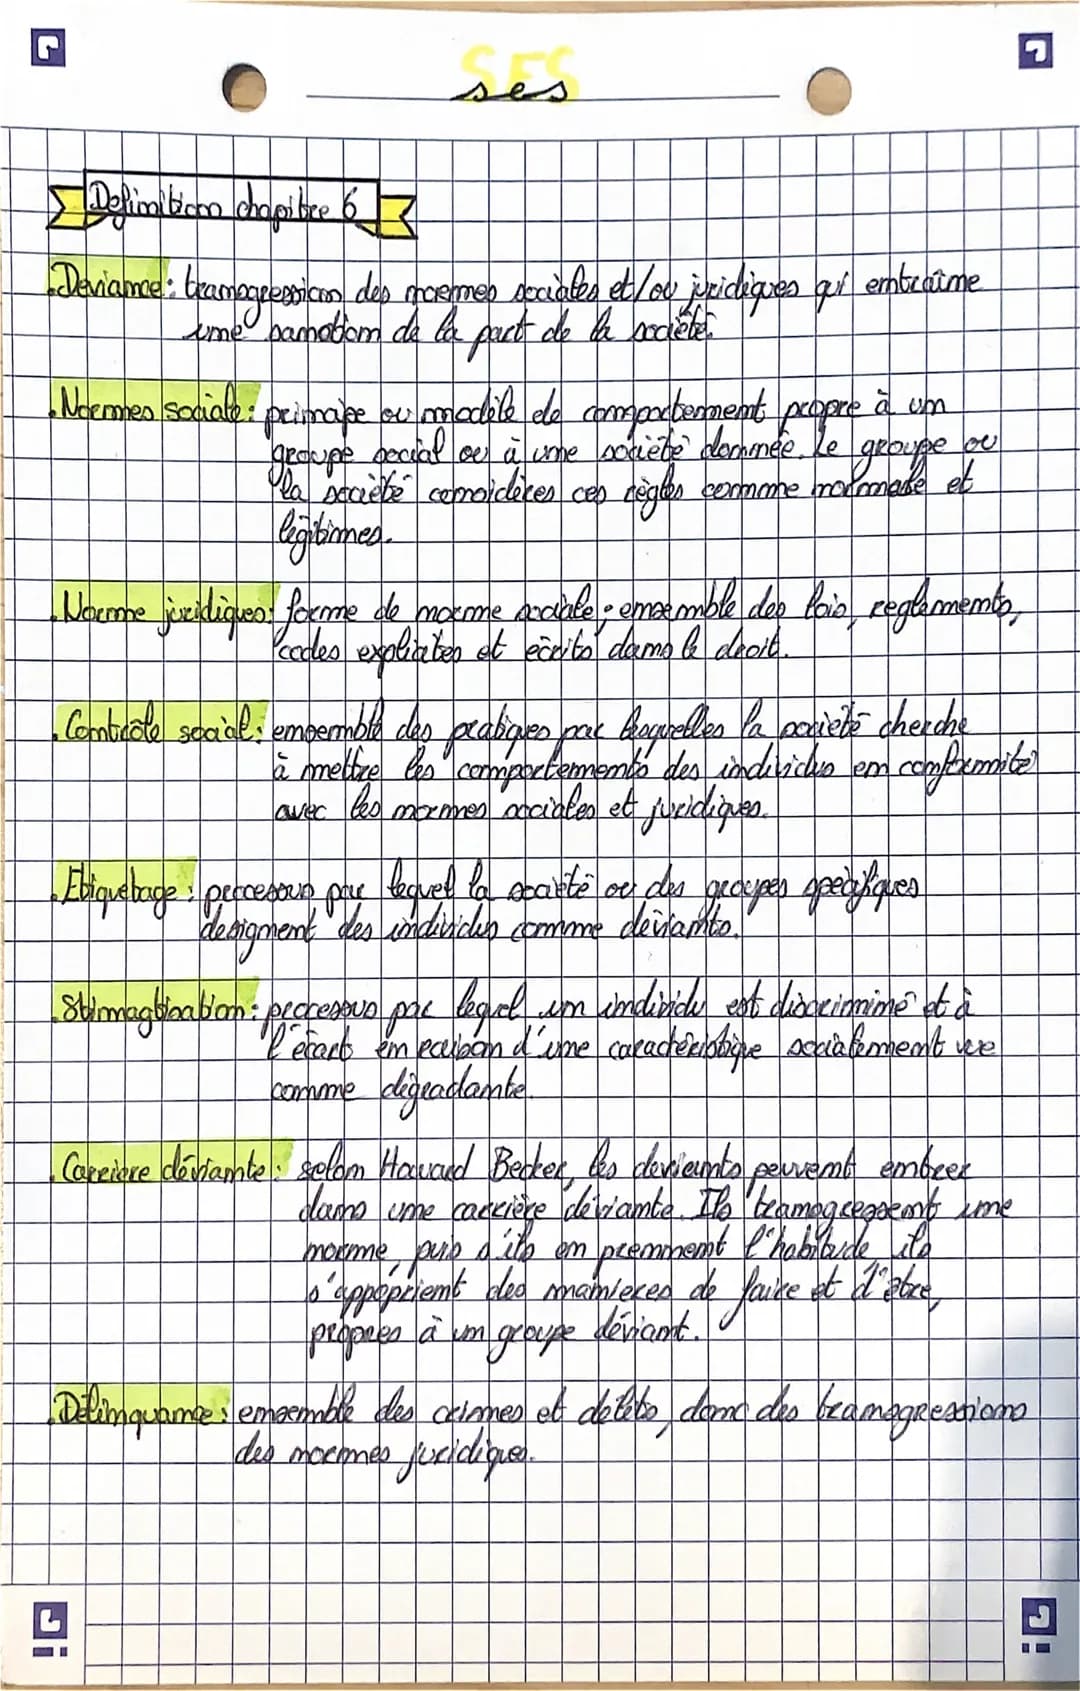 SES
ses
Definition chapitre 6
. Déviance : transgression des normes sociales et/ou juridiques qui entraîne
une sanction de la part de la société.
. Normes sociale : principe ou modèle de comportement propre à un
groupe social ou à une société donnée. Le groupe ou
la société considères ces règles comme normale et
légitimes.
. Norme juridiques : forme de norme sociale ; ensemble des lois, reglements,
codes explicites et écrits dans le droit.
. Contrôle social : ensemble des pratiques par lesquelles la société cherche
à mettre les comportements des individus en conformité
avec les normes sociales et juridiques.
. Etiquetage : processus par lequel la société ou des groupes spécifiques
designent des individus comme déviants.
. Stimagtisation : processus par lequel un individu est discriminé et à
l'écart en raison d'une caractéristique socialement vue
comme dégradante.
. Carrière déviante : selon Howard Becker, les devients peuvent entrer
dans une carrière déviante. Ils transgressent une
norme, puis s'ils en prennent l'habitude, ils
s'appoprient des manieres de faire et d'être,
propres à un groupe déviant.
. Délinquance : ensemble des crimes et délits, donc des transgressions
des normes juridiques.